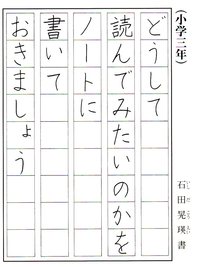 (小学三年)
どうして
読んでみたいのかを
ノートに
書いて
おきましょう
石田晃瑛書